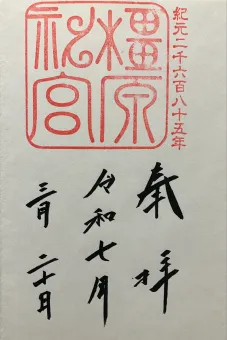 紀元二千六百八十五年
橿原神宮
奉拝
令和七年
三月二十日